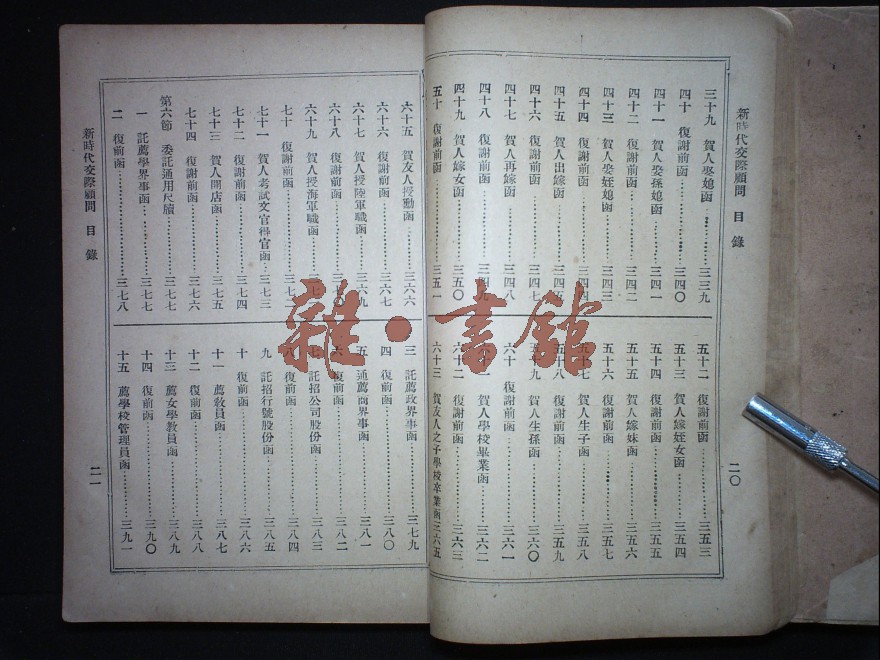 新時代交際顧問 目錄
二〇
三十九 賀人娶媳函 三三九
四十 復謝前函 三四〇
四十一 賀人娶孫媳函 三四一
四十二 復謝前函 三四二
四十三 賀人娶姪媳函 三四三
四十四 復謝前函 三四四
四十五 賀人出嫁函 三四五
四十六 復謝前函 三四七
四十七 賀人再嫁函 三四八
四十八 復謝前函 三四九
四十九 賀人嫁女函 三五〇
五十 復謝前函 三五一
五十二 復謝前函 三五三
五十三 賀人嫁姪女函 三五四
五十四 復謝前函 三五五
五十五 賀人嫁妹函 三五六
五十六 復謝前函 三五七
五十七 賀人生子函 三五八
五十八 復謝前函 三五九
五十九 賀人生孫函 三六〇
六十 復謝前函 三六一
賀人學校畢業函 三六二
六十二 復謝前函 三六三
六十三 賀友人之子學校卒業函 三六五
六十五 賀友人授勳函 三六六
六十六 復謝前函 三六七
六十七 賀人授陸軍職函 三六九
六十八 復謝前函 三七〇
六十九 賀人授海軍職函 三七
七十 復謝前函 三七二
七十一 賀人考試文官得官函 三七三
七十二 復謝前函 三七四
七十三 賀人開店函 三七五
七十四 復謝前函 三七六
第六節 委託通用尺牘 三七七
一 託薦學界事函 三七七
二 復前函 三七八
三 託薦政界事函 三七九
四 復前函 三八〇
五 通薦商界事函 三八一
六 復前函 三八二
七 託招公司股份函 三八三
八 復前函 三八四
九 託招行號股份函 三八五
十 復前函 三八六
十一 薦教員函 三八七
十二 復前函 三八八
十三 薦女學教員函 三八九
十四 復前函 三九〇
十五 薦學校管理員函 三九一
新時代交際顧問 目錄
二一
雜·書館